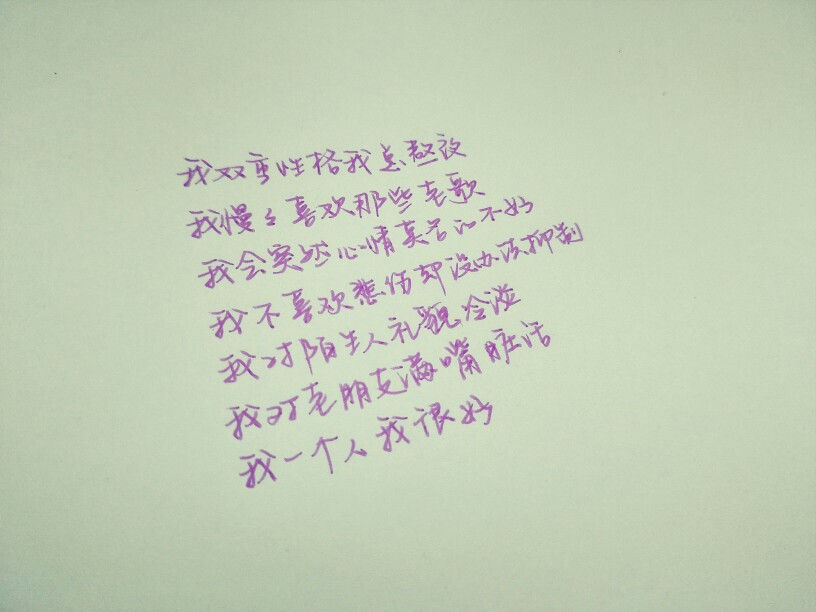 我双重性格我总敷设
我慢々喜欢那些老歌
我会突然心情莫名的不好
我不喜欢悲伤却没办法抑制
我对陌生人礼貌冷淡
我对老朋友满嘴脏话
我一个人我很好